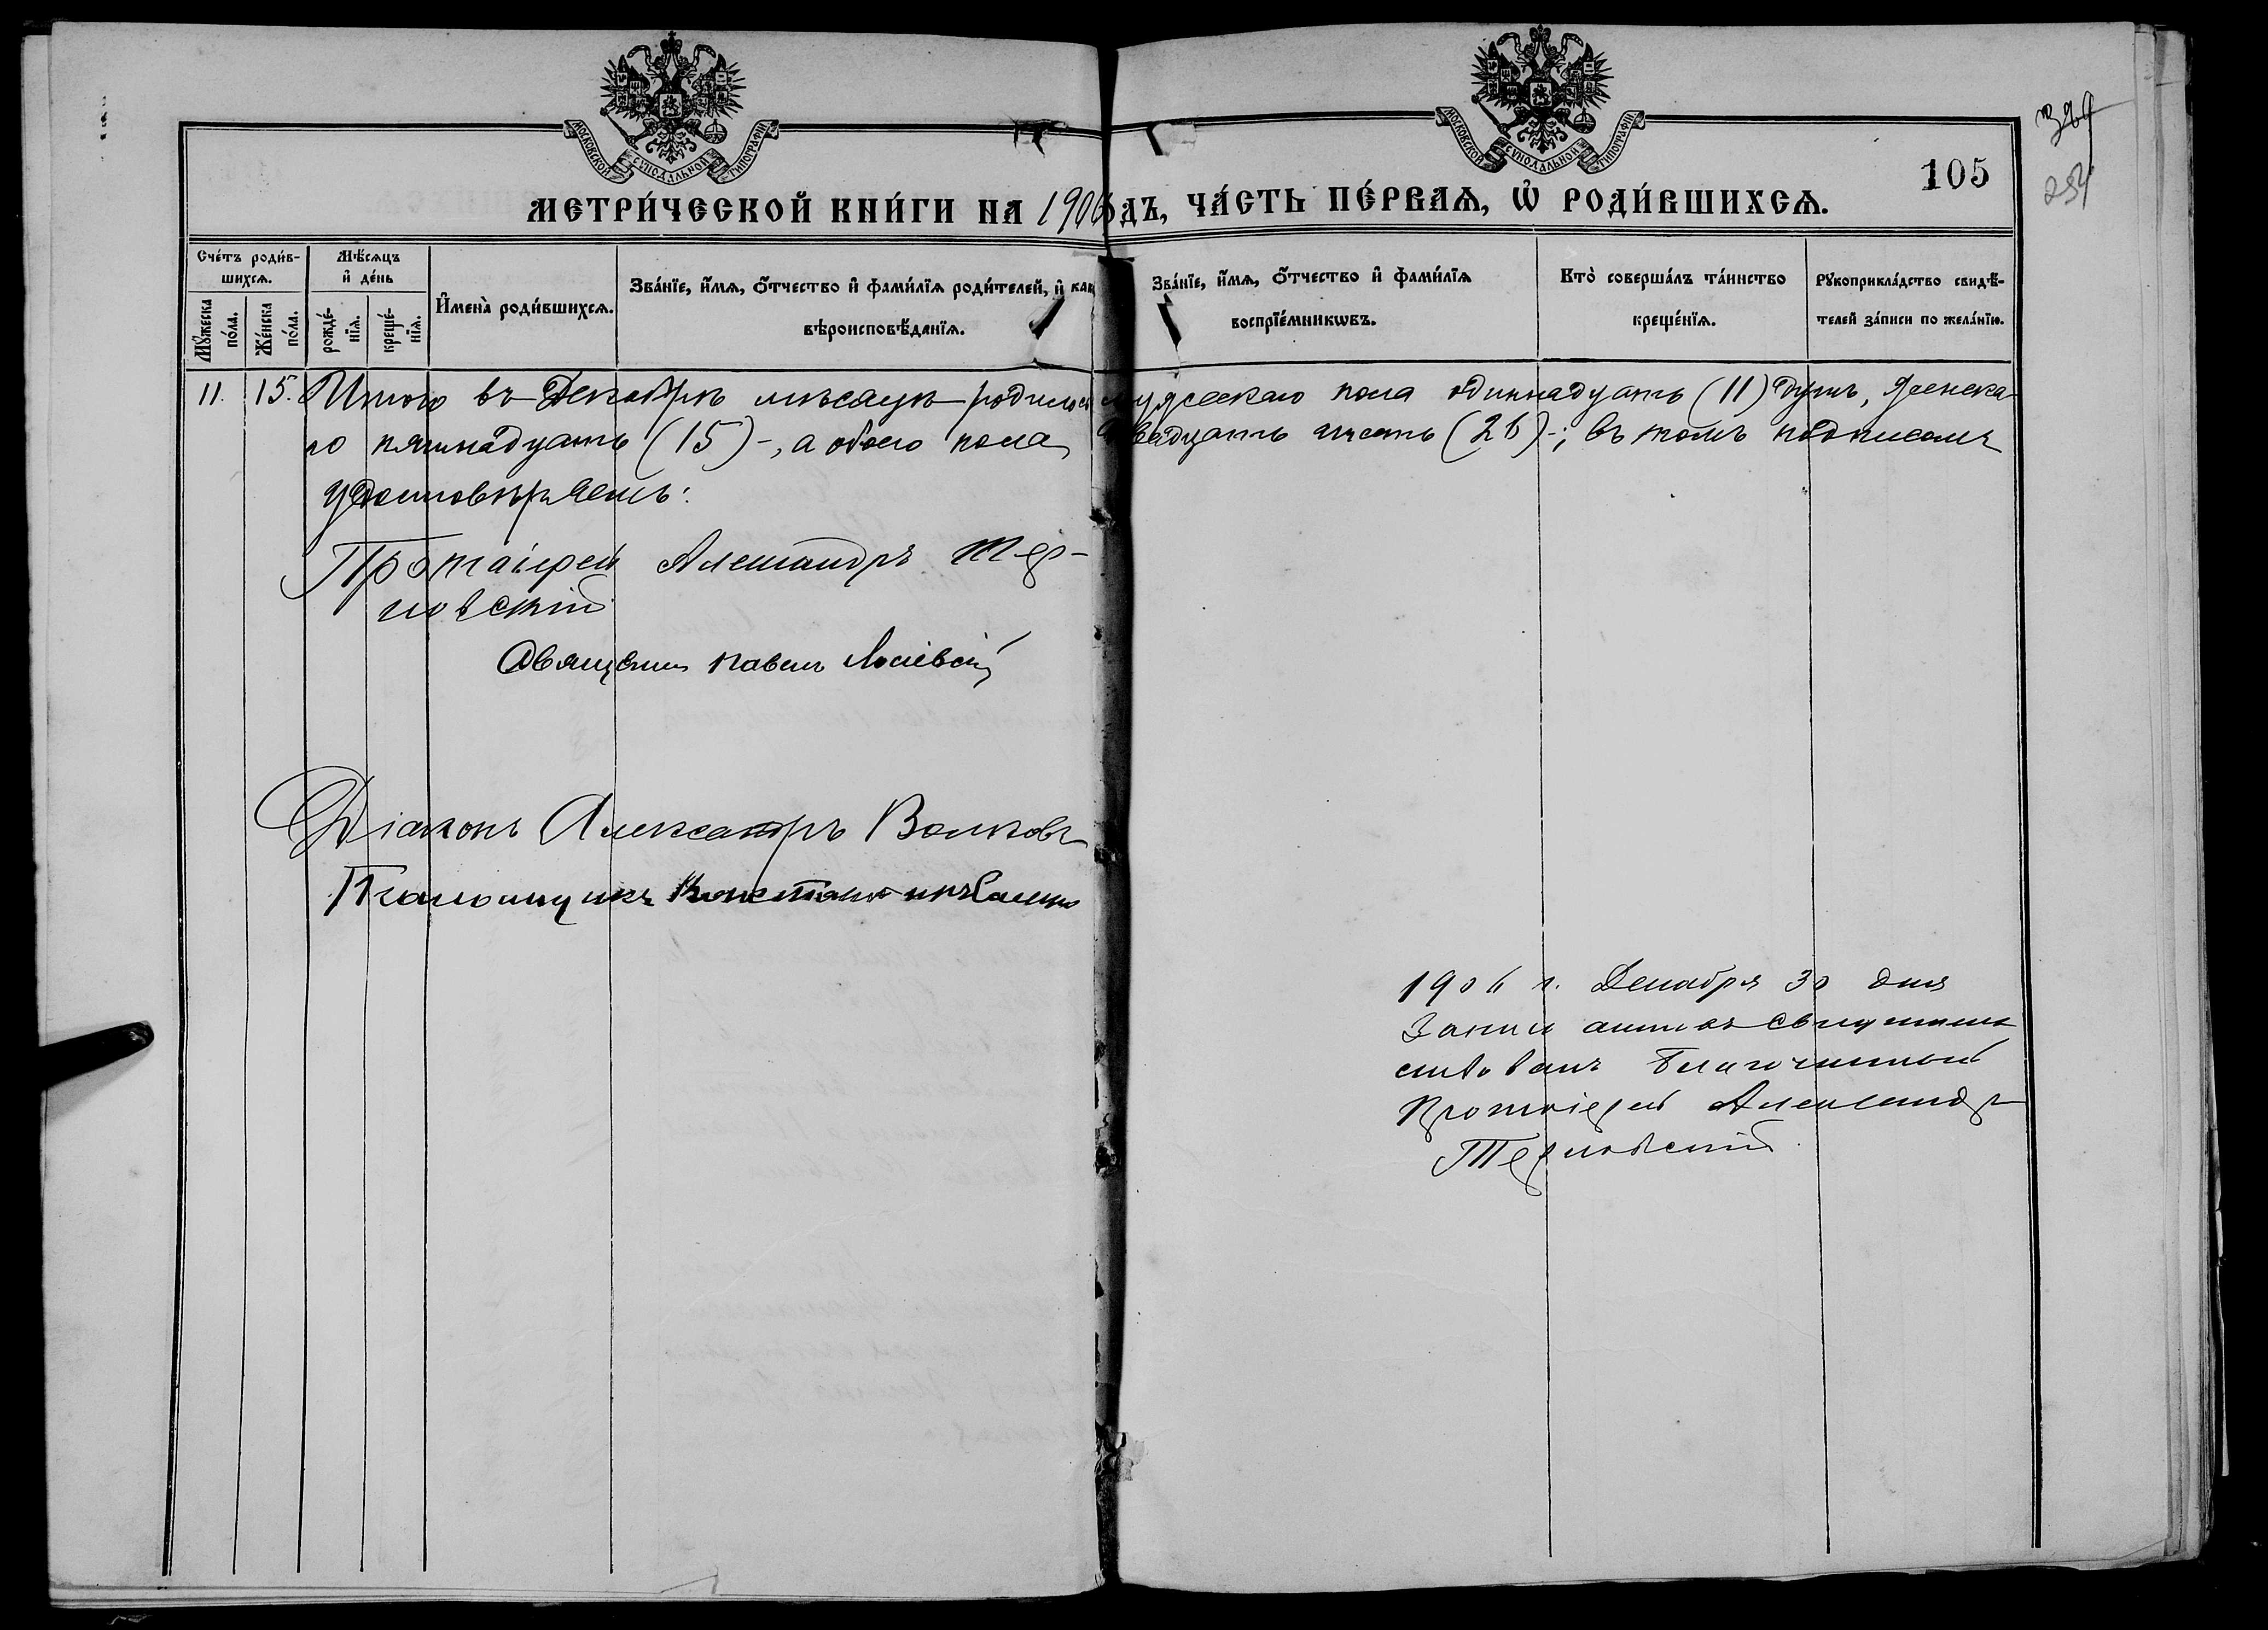 МОСКОВСКОЙ СѴНОДАЛЬНОЙ ТИПОГРАФІИ
МОСКОВСКОЙ СѴНОДАЛЬНОЙ ТИПОГРАФІИ
105
МЕТРИ́ЧЕСКОЙ КНИ́ГИ НА 1906 ДЪ, ЧА́СТЬ ПЕ́РВАѦ, Ѡ҆ РОДИ́ВШИХСѦ.
Сче́тъ роди́в-
шихсѧ.
Мꙋ́жеска по́ла.
Же́нска по́ла.
Мѣ́сѧцъ
и҆ де́нь
рожде́-
нїѧ.
креще́-
нїѧ.
И҆мена̀ роди́вшихсѧ.
Зва́нїе, и҆́мѧ, ѻ҆́тчество и҆ фами́лїѧ роди́телей, и҆ как
вѣроисповѣ́данїѧ.
Зва́нїе, и҆́мѧ, ѻ҆́тчество и҆ фами́лїѧ
воспрїе́мникѡвъ.
Кто̀ соверша́лъ та́инство
креще́нїѧ.
Рꙋкоприкла́дство свидѣ́-
телей за́писи по жела́нїю.
11. 15. Итого въ Декабрѣ мѣсяцѣ родилось мужескаго пола одиннадцать (11) душъ, женска-
го пятнадцать (15) -, а обоего пола двадцать шесть (26) -; въ томъ подписомъ
удостовѣряемъ:
Протоіерей Александръ Тер-
новскій
Священ Павелъ
Діаконъ Александръ Волковъ
Псаломщикъ
1906 г. Декабря 30 дня
Записи актовъ свидѣтель
ствовалъ Благочинный
Протоіерей Александръ
Терновскій.